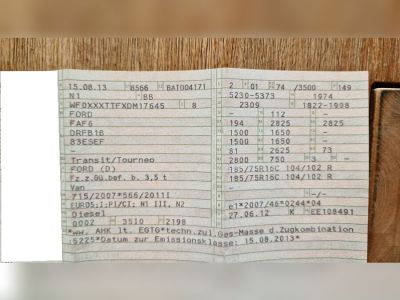 15.08.13 8566 BAT004171
N1 BB
WF0XXXTTFXDM17645 8
FORD
FAF6
DRFB1B
83ESEF
-
Transit/Tourneo
FORD (D)
Fz.z.Gü.bef. b. 3,5 t
Van
715/2007*566/2011I
EURO5;I;PI/CI; N1 III, N2
Diesel
0002 3510 2198
*ww. AHK lt. EGTG*techn.zul.Ges-Masse d.Zugkombination
:5225*Datum zur Emissionsklasse: 15.08.2013*
2 01 74 /3500 149
5230-5373 1974
2309 1822-1998
- 112 -
194 2825 2825
1500 1650 -
1500 1650 -
81 2625 73
2800 750 3 -
185/75R16C 104/102 R
185/75R16C 104/102 R
- -/-
e1*2007/46*0244*04
27.06.12 K EE108491